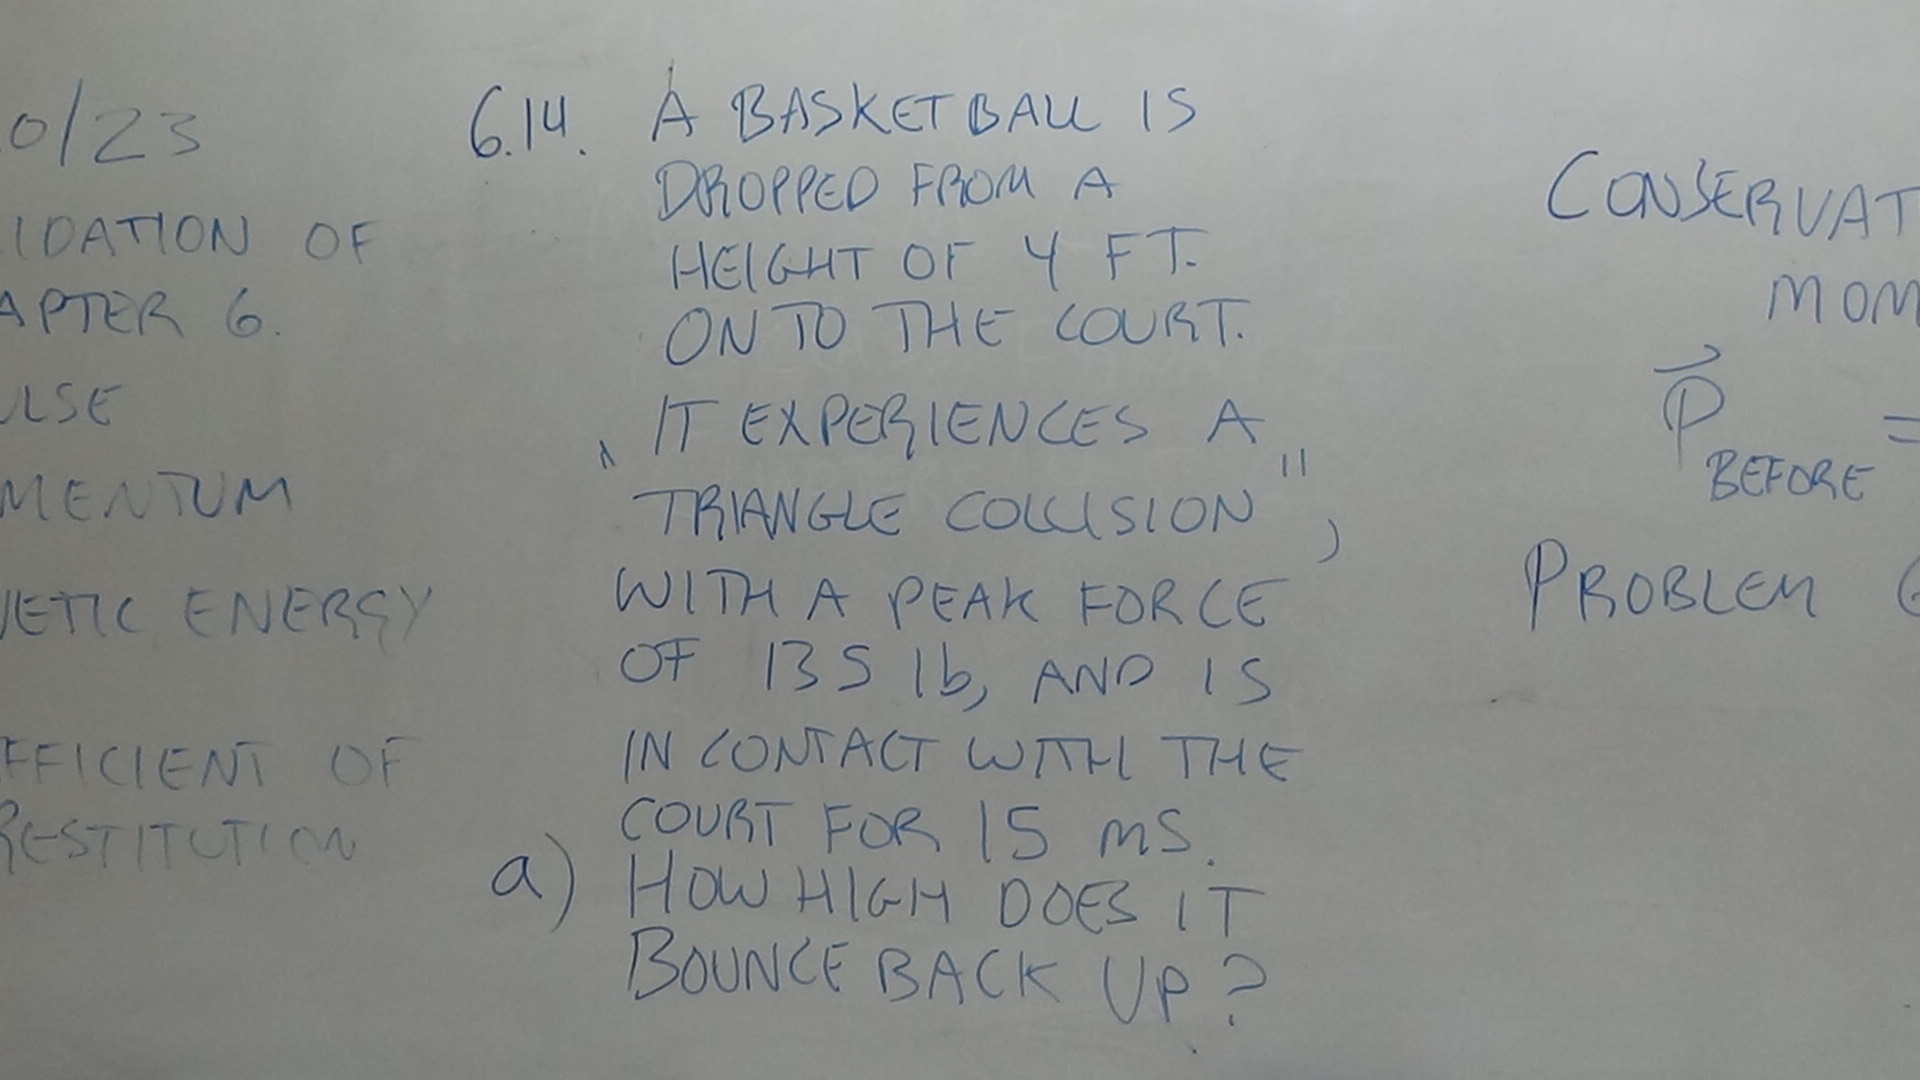 0/23
IDATION OF
APTER 6.
LSE
MENTUM
ETIC ENERGY
FFICIENT OF
RESTITUTION
6.14. A BASKETBALL IS
DROPPED FROM A
HEIGHT OF 4 FT.
ONTO THE COURT.
IT EXPERIENCES A
"TRIANGLE COLLISION",
WITH A PEAK FORCE
OF 135 lb, AND IS
IN CONTACT WITH THE
COURT FOR 15 mS.
a) HOW HIGH DOES IT
BOUNCE BACK UP?
CONSERVAT
MOM
P BEFORE =
PROBLEM 6